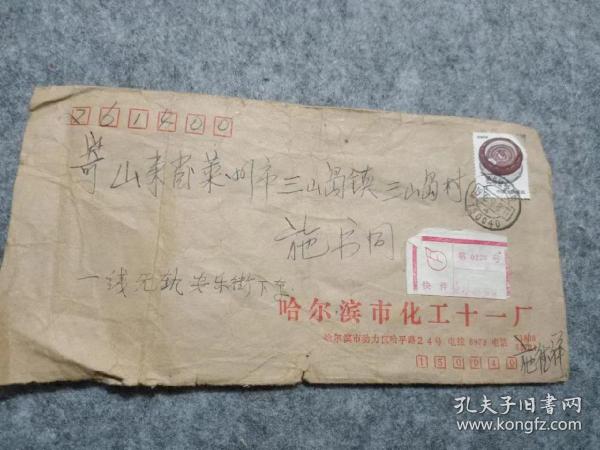 261400
寄 山东省莱州市三山岛镇三山岛村
施书同
第 0220 号
快件
一线无轨安乐街下车
哈尔滨市化工十一厂
哈尔滨市动力区哈平路24号 电挂 6973 电话
150040
孔夫子旧书网
www.kongfz.com